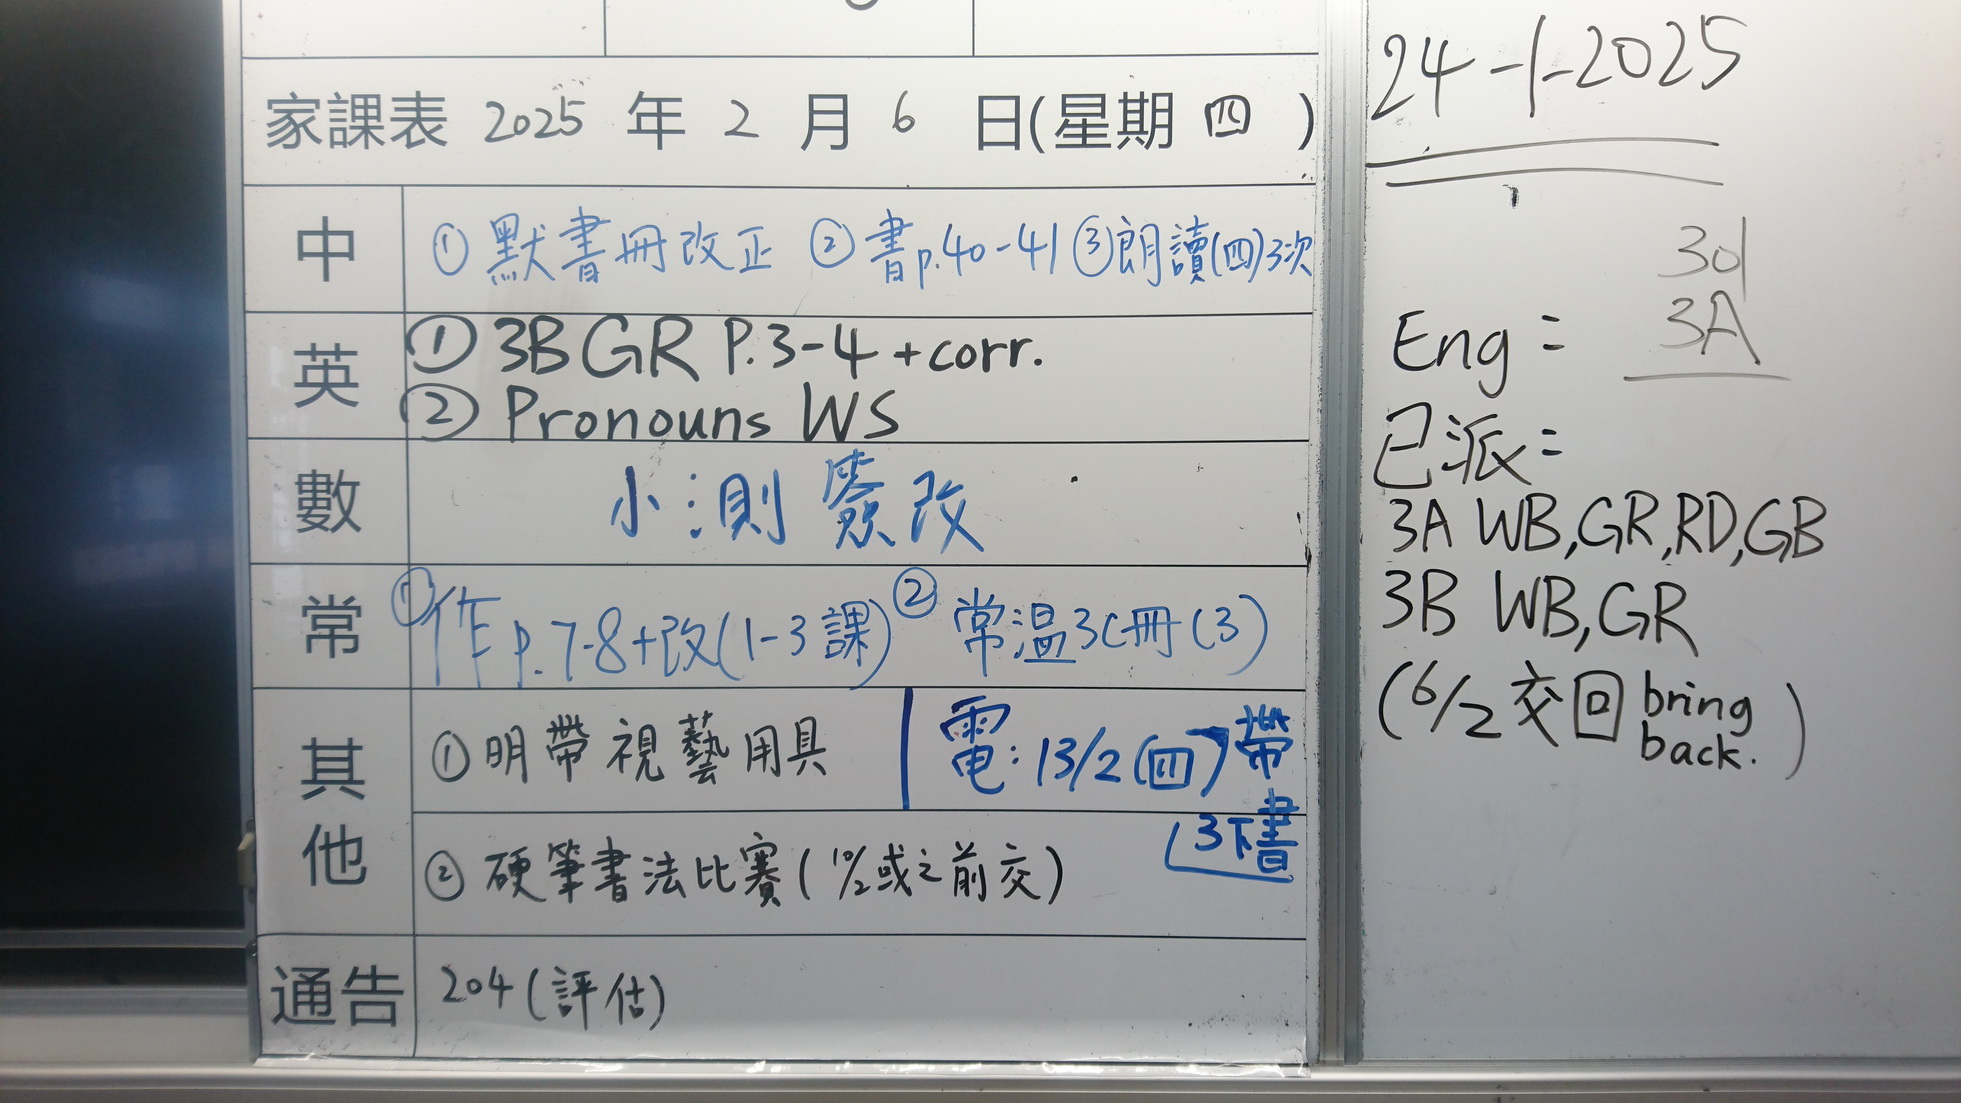 家課表 2025 年 2 月 6 日(星期 四 )
中 ① 默書冊改正 ② 書p.40-41 ③朗讀(四)3次
英 ① 3B GR P.3-4 +corr.
② Pronouns WS
數 小測簽改
常 ①作p.7-8+改(1-3課) ② 常溫3C冊(3)
其他 ① 明帶視藝用具
電: 13/2(四)帶
3下書
② 硬筆書法比賽(10/2或之前交)
通告 204(評估)
24-1-2025
3d
3A
Eng:
已派:
3A WB,GR,RD,GB
3B WB,GR
(6/2 交回 bring back.)